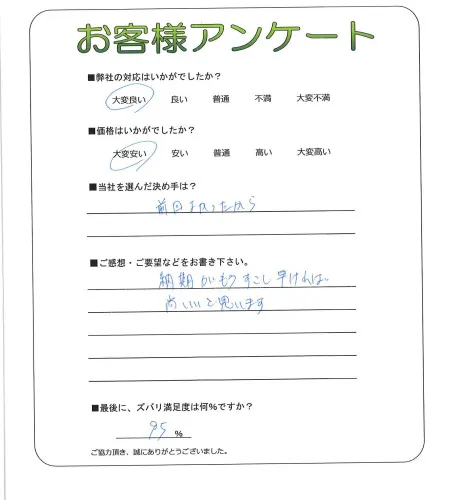 お客様アンケート
■弊社の対応はいかがでしたか？
大変良い 良い 普通 不満 大変不満
■価格はいかがでしたか？
大変安い 安い 普通 高い 大変高い
■当社を選んだ決め手は？
前回よかったから
■ご感想・ご要望などをお書き下さい。
納期がもうすこし早ければ
尚いいと思います
■最後に、ズバリ満足度は何%ですか？
95 %
ご協力頂き、誠にありがとうございました。